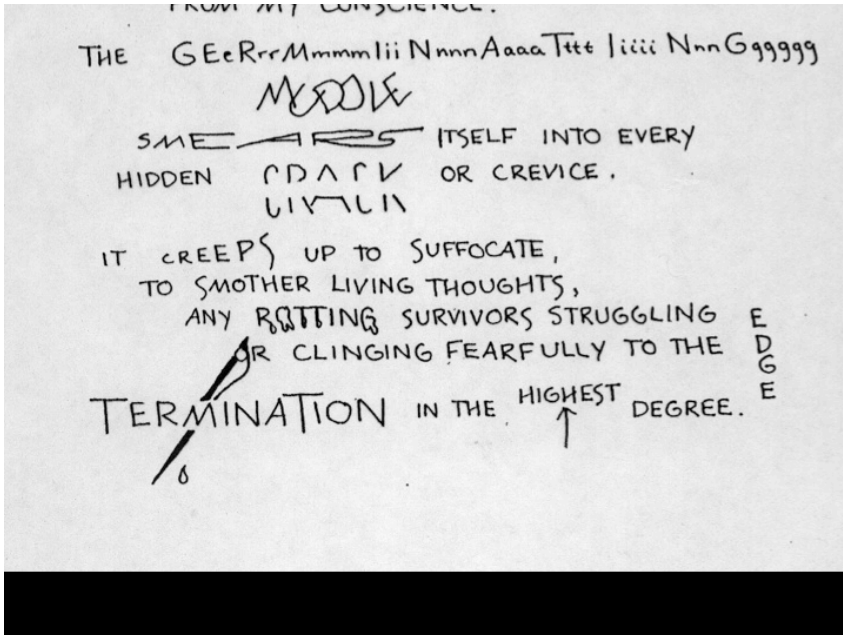 FROM MY CONSCIENCE.
THE GEeRrrMmmmIiiNnnnAaaaTtttIiiiiNnnGggggg
MUDDLE
SMEARS ITSELF INTO EVERY
HIDDEN CRACK OR CREVICE.
IT CREEPS UP TO SUFFOCATE,
TO SMOTHER LIVING THOUGHTS,
ANY ROTTING SURVIVORS STRUGGLING
OR CLINGING FEARFULLY TO THE EDGE
TERMINATION IN THE HIGHEST DEGREE.